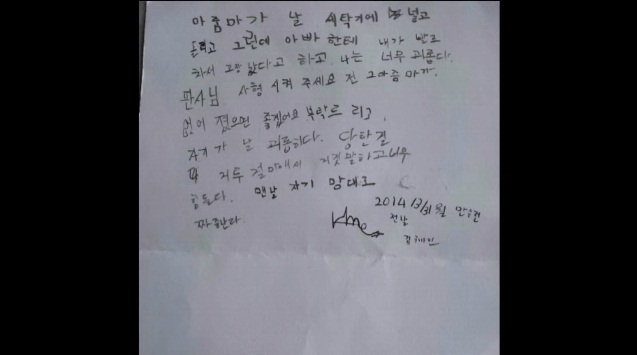 아줌마가 날 세탁기에 넣고
돌리고 그런데 아빠한테 내가 발로
차서 고장 났다고 하고. 나는 너무 괴롭다.
판사님 사형 시켜 주세요 전 그아줌마가.
없어 졌으면 좋겠어요 부탁드리고
자기가 날 괴롭히다. 당한걸
거짓말하고 너무
힘들다. 맨날 자기 맘대로
짜증난다
2014